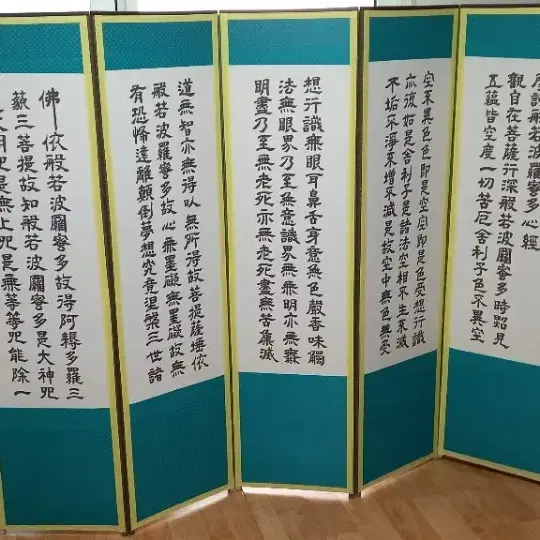 摩訶般若波羅蜜多心經
觀自在菩薩行深般若波羅蜜多時照見
五蘊皆空度一切苦厄舍利子色不異空
空不異色色卽是空空卽是色受想行識
亦復如是舍利子是諸法空相不生不滅
不垢不淨不增不減是故空中無色無受
想行識無眼耳鼻舌身意無色聲香味觸
法無眼界乃至無意識界無無明亦無無
明盡乃至無老死亦無老死盡無苦集滅
道無智亦無得以無所得故菩提薩埵依
般若波羅蜜多故心無罣礙無罣礙故無
有恐怖遠離顚倒夢想究竟涅槃三世諸
佛依般若波羅蜜多故得阿耨多羅三
藐三菩提故知般若波羅蜜多是大神呪
大明呪是無上呪是無等等呪能除一